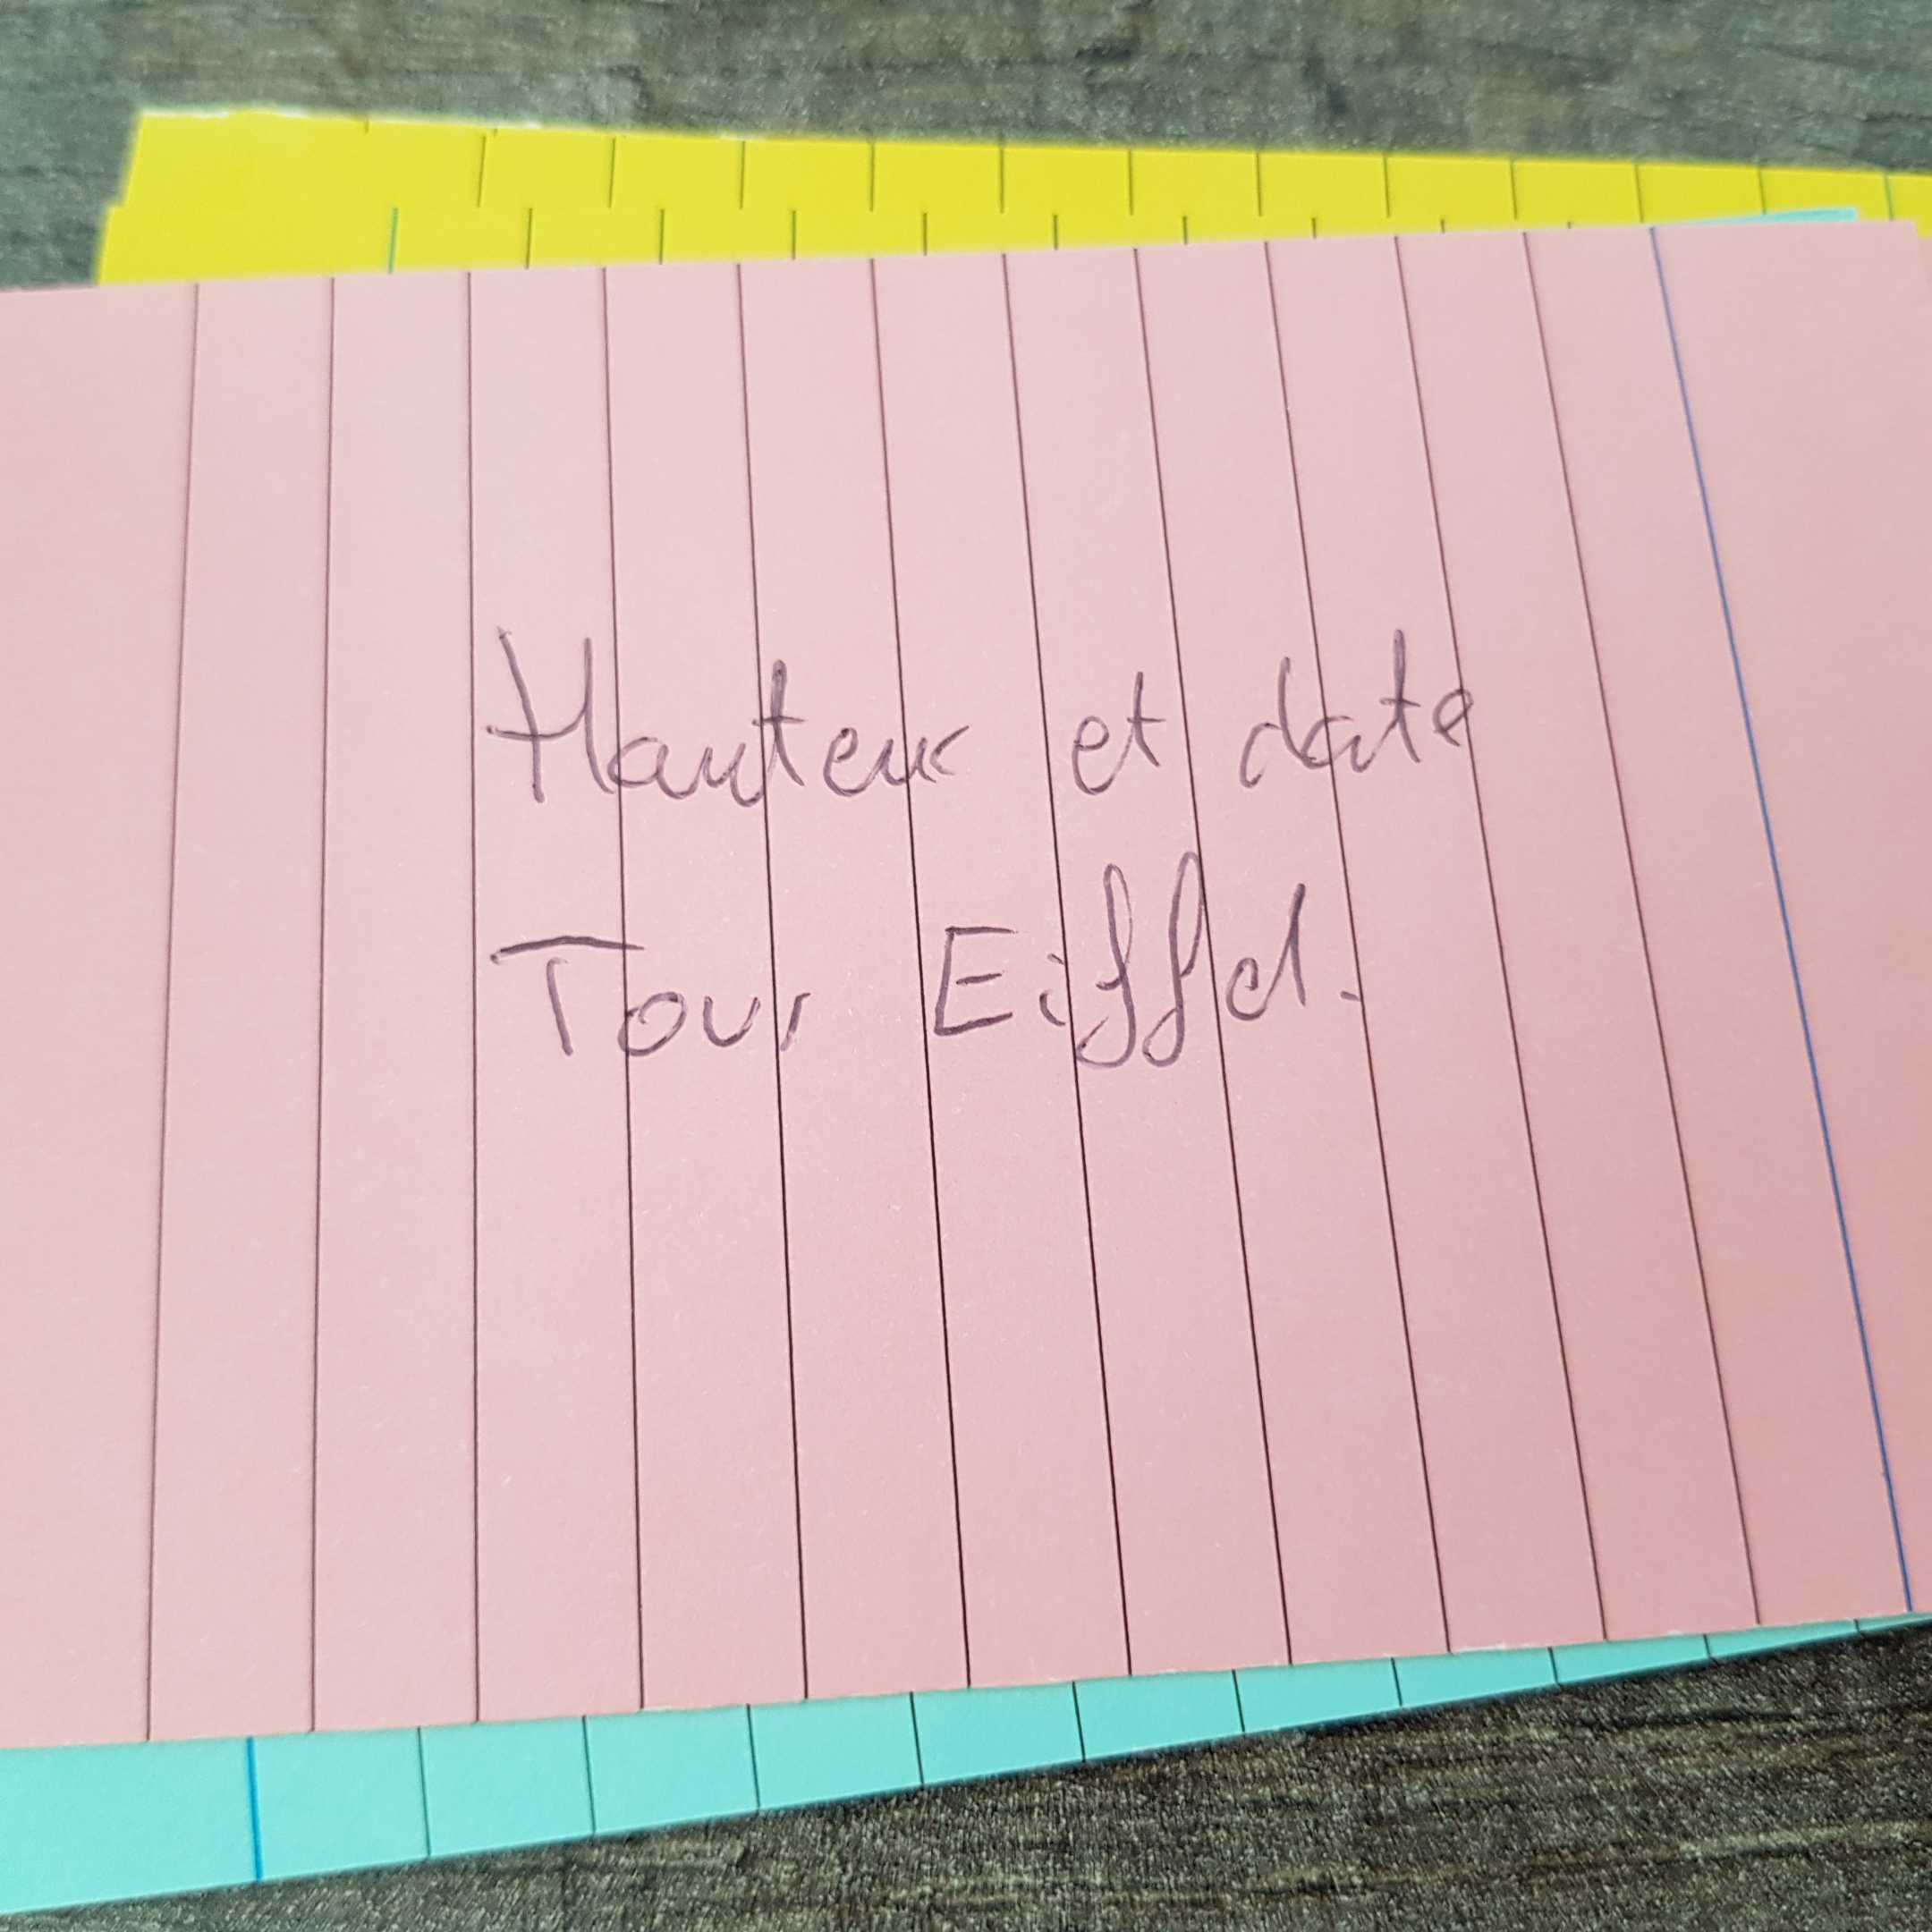 Hauteur et date
Tour Eiffel.